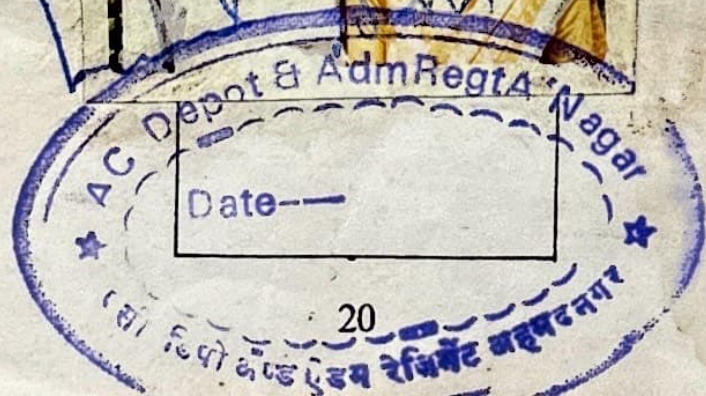 AC Depot & Adm Regt A'Nagar
Date---
20
सी डिपो अँण्ड ऐडम रेजिमेंट अहमदनगर